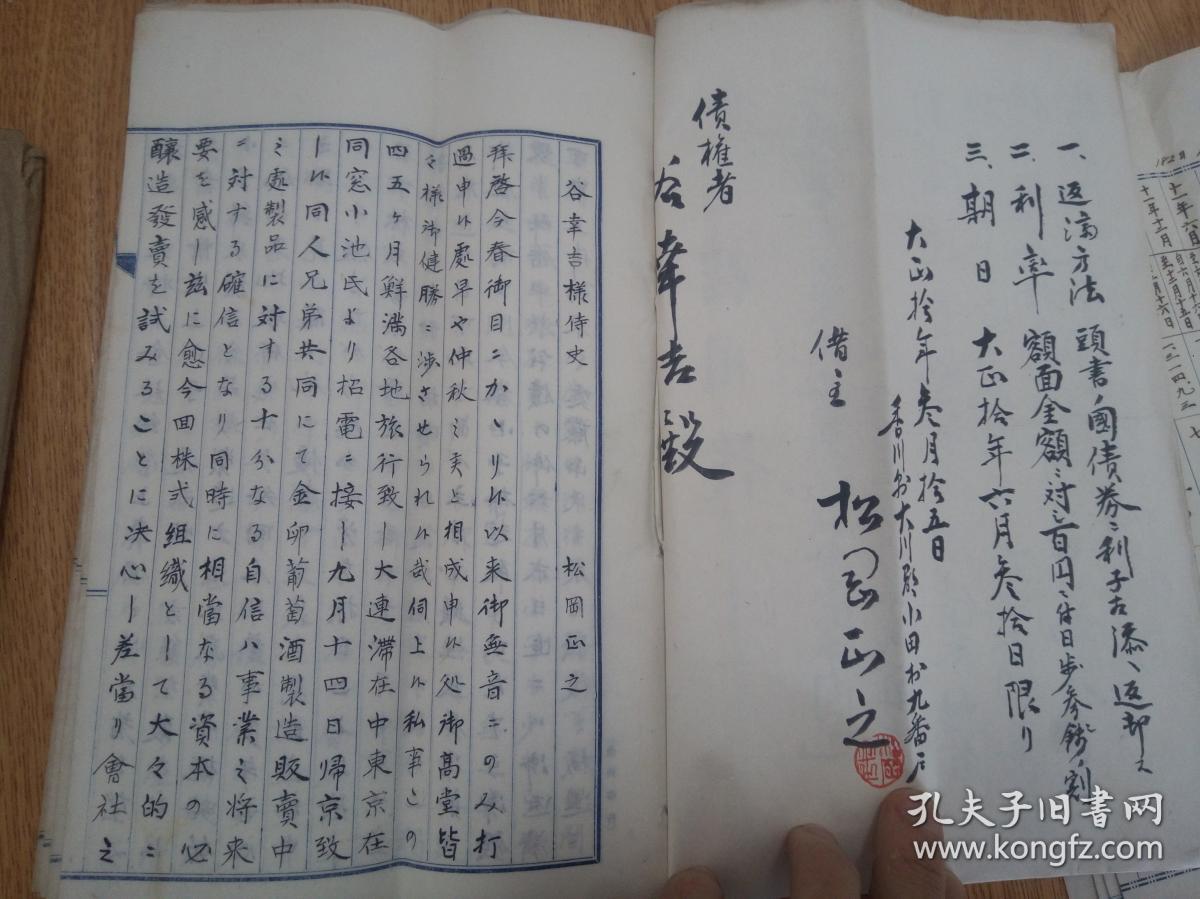 一、返済方法 頭書ノ國債券ニ利子古添ヘ返却ス
二、利率 額面金額ニ対シ百円ニ付日歩参銭ノ割
三、期日 大正拾年六月参拾日限リ
大正拾年参月拾五日
香川縣大川郡小田村九番戸
借主 松岡正之
債権者
谷幸吉殿
谷幸吉様侍史 松岡正之
拝啓今春御目ニかゝり候以来御無音ニのみ打
過申候處早や仲秋之美と相成申候処御高堂皆
々様御健勝ニ渉させられ候哉伺上候私事この
四五ヶ月鮮満各地旅行致し大連滞在中東京在
同窓小池氏より招電ニ接し九月十四日帰京致
し候同人兄弟共同にて金卯葡萄酒製造販賣中
之處製品に対する十分なる自信ハ事業之将来
ニ対する確信となり同時に相當なる資本の必
要を感し茲に愈今回株式組織として大々的ニ
釀造發賣を試みることに决心し差當り會社之
182日
十一年六月
十一年十二月
孔夫子旧书网
www.kongfz.com